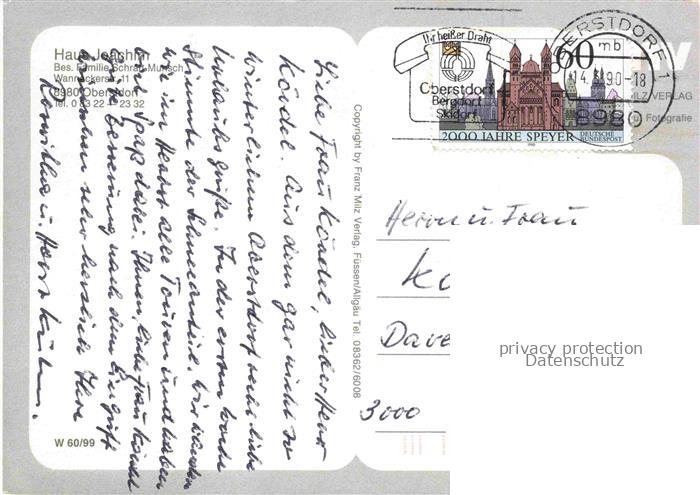 Haus Joachim
Bes. Familie Schratt-Munsch
Wannackerstr. 11
8980 Oberstdorf
Tel. 0 83 22 - 23 32
Liebe Frau Kördel, lieber Herr
Kördel. Aus dem gar nicht so
winterlichen Oberstdorf sehr liebe
Urlaubs Grüße. In der ersten Woche
streikte der Schneeartikel. Wir wandern
wie im Herbst alle Touren und haben
viel Spaß dabei. Ihnen, liebe Frau Kördel
gute Besserung nach dem Eingriff
und sehr herzlich Ihre
Roswitha u. Horst
W 60/99
Copyright by Franz Milz Verlag, Füssen/Allgäu Tel. 08362/6008
Ihr heißer Draht
Oberstdorf
Bergdorf
Skidorf
60
2000 JAHRE SPEYER
DEUTSCHE
BUNDESPOST
1990
ERSTDORF 1
mb
14. 90-18
8980
MILZ VERLAG
Fotografie
Herrn u. Frau
Kö
Dave
3000
privacy protection
Datenschutz